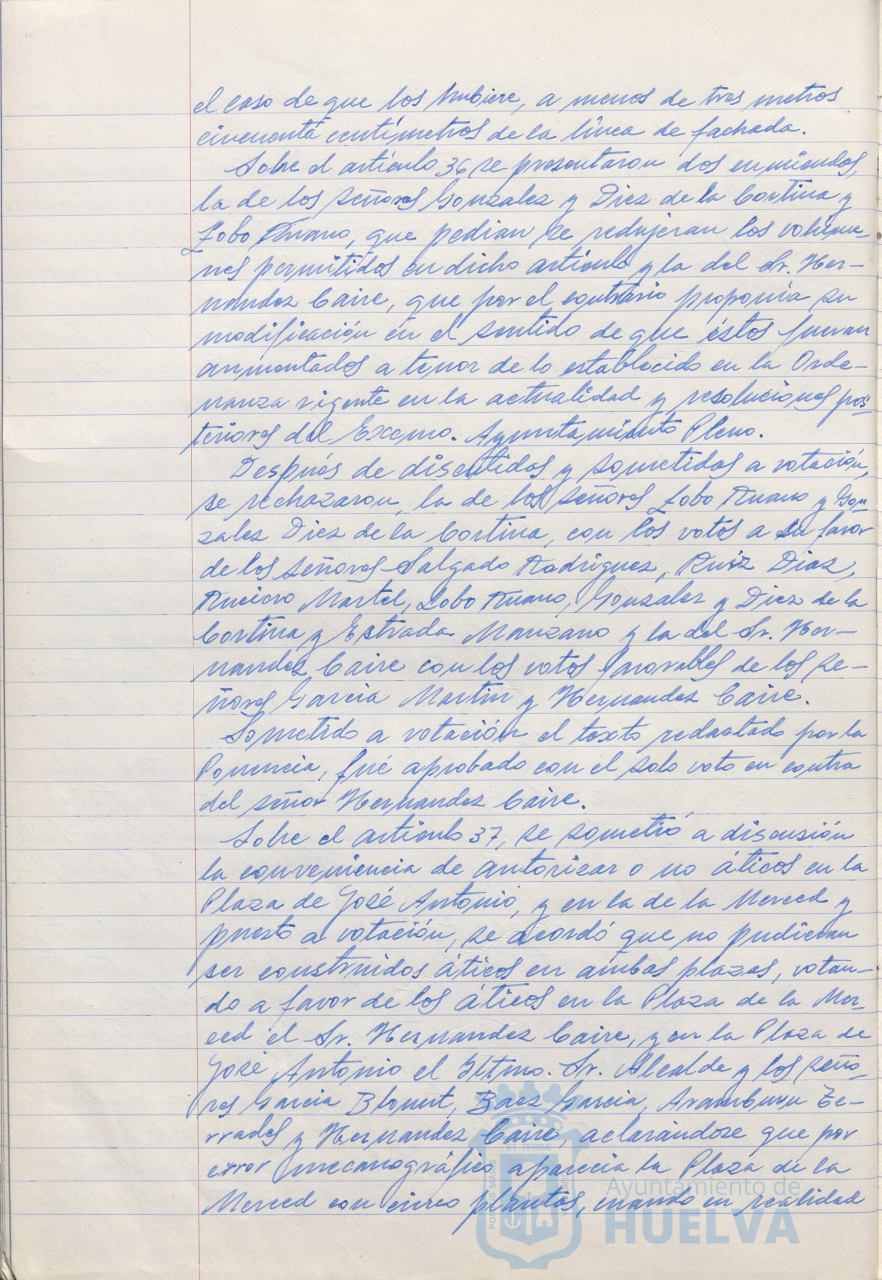 el caso de que los hubiere, a menos de tres metros
cincuenta centímetros de la línea de fachada.
Sobre el artículo 36 se presentaron dos enmiendas,
la de los señores Gonzalez y Diez de la Cortina y
Lobo Ruano, que pedian se redujeran los volúme-
nes permitidos en dicho artículo y la del Sr. Her-
nandez Caire, que por el contrario proponía su
modificación en el sentido de que éstos fueran
aumentados a tenor de lo establecido en la Orde-
nanza vigente en la actualidad y resoluciones pos-
teriores del Excmo. Ayuntamiento Pleno.
Después de discutidas y sometidas a votación,
se rechazaron, la de los señores Lobo Ruano y Gon
zalez Diez de la Cortina, con los votos a su favor
de los señores Salgado Rodriguez, Ruiz Diaz,
Martel, Lobo Ruano, Gonzalez y Diez de la
Cortina y Estrada Manzano y la del Sr. Her-
nandez Caire con los votos favorables de los se-
ñores Garcia Martin y Hernandez Caire.
Sometido a votación el texto redactado por la
Ponencia, fué aprobado con el solo voto en contra
del señor Hernandez Caire.
Sobre el articulo 37, se sometió a discusión
la conveniencia de autorizar o no áticos en la
Plaza de José Antonio, y en la de la Merced y
puesto a votación, se acordó que no pudieran
ser construidos áticos en ambas plazas, votan-
do a favor de los áticos en la Plaza de la Mer-
ced el Sr. Hernandez Caire, y en la Plaza de
José Antonio el Iltmo. Sr. Alcalde y los seño-
res Garcia Blonert, Baez Garcia, Aramburu Te-
rrades y Hernandez Caire, aclarándose que por
error mecanográfico aparecia la Plaza de la
Merced con cinco plantas, cuando en realidad
Ayuntamiento de
HUELVA